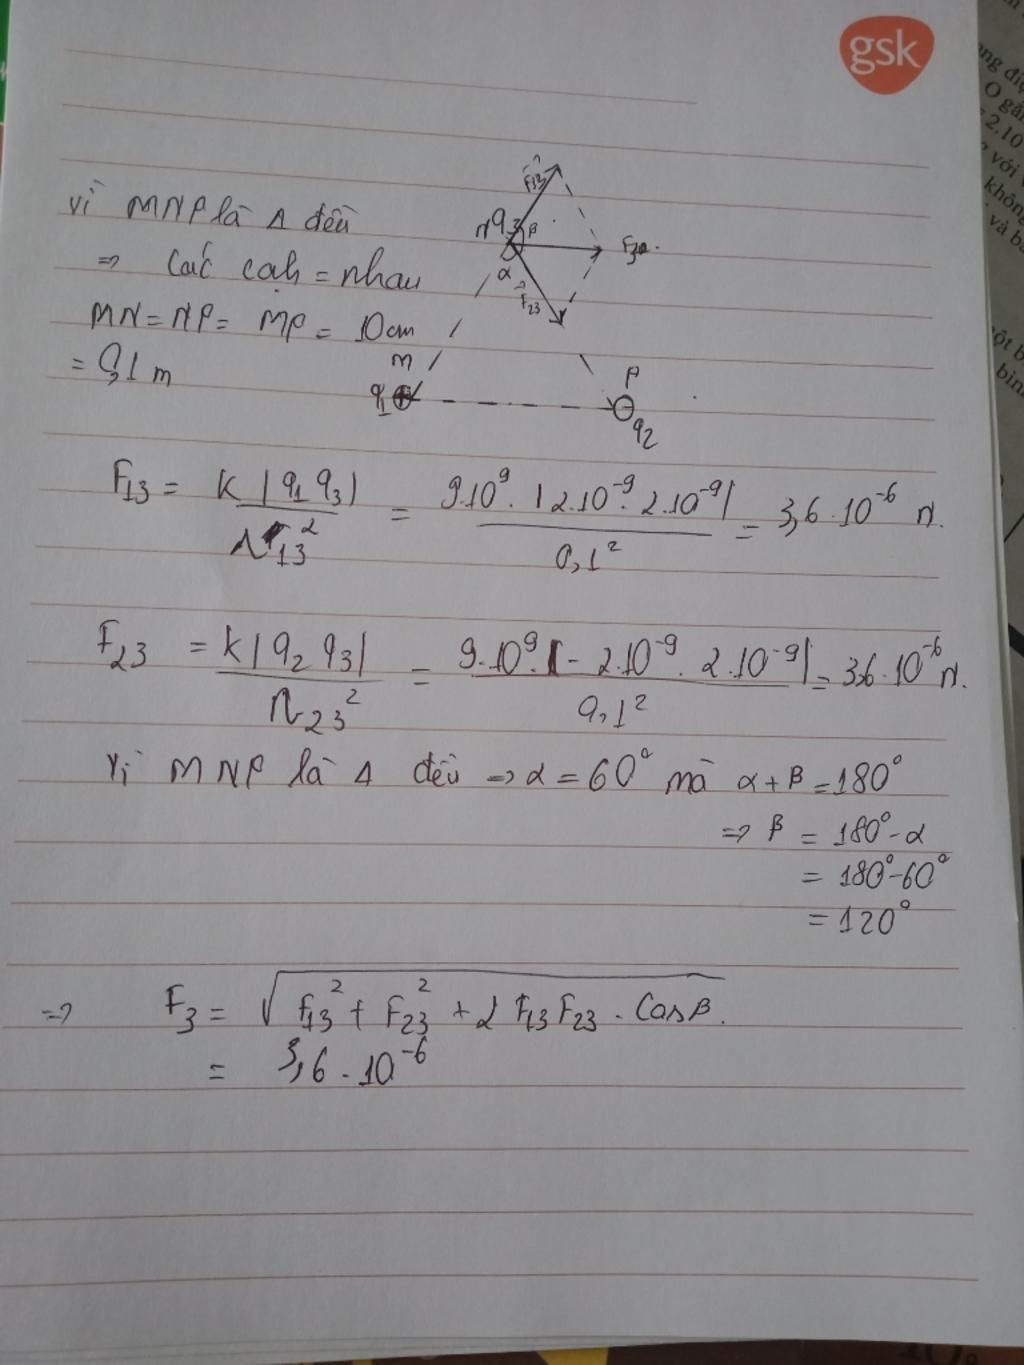 gsk
Vì MNP là Δ đều
⇒ Các cạh = nhau
MN = NP = MP = 10cm
= 0,1 m
F13
N q3 β
F3
α
F23
M
q1 ⊕
P
⊖
q2
F13 = k|q1 q3| / r13² = 9.10⁹.|2.10⁻⁹.2.10⁻⁹| / 0,1² = 3,6.10⁻⁶ N.
F23 = k|q2 q3| / r23² = 9.10⁹.|-2.10⁻⁹.2.10⁻⁹| / 0,1² = 3,6.10⁻⁶ N.
Vì MNP là Δ đều ⇒ α = 60° mà α + β = 180°
⇒ β = 180° - α
= 180° - 60°
= 120°
⇒ F3 = √(F13² + F23² + 2 F13 F23 . Cosβ.)
= 3,6.10⁻⁶
ng điệ
O gần
2.10
với
không
và b
ột b
bìn